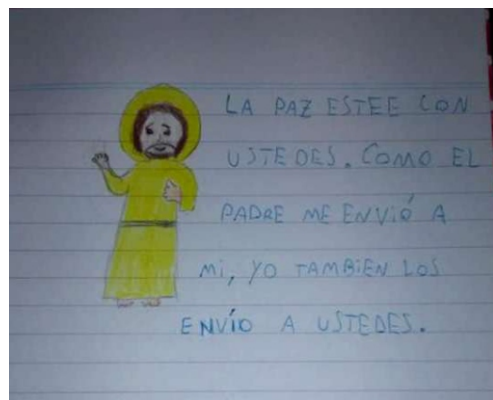 LA PAZ ESTEE CON
USTEDES. COMO EL
PADRE ME ENVIÓ A
MI, YO TAMBIEN LOS
ENVÍO A USTEDES.